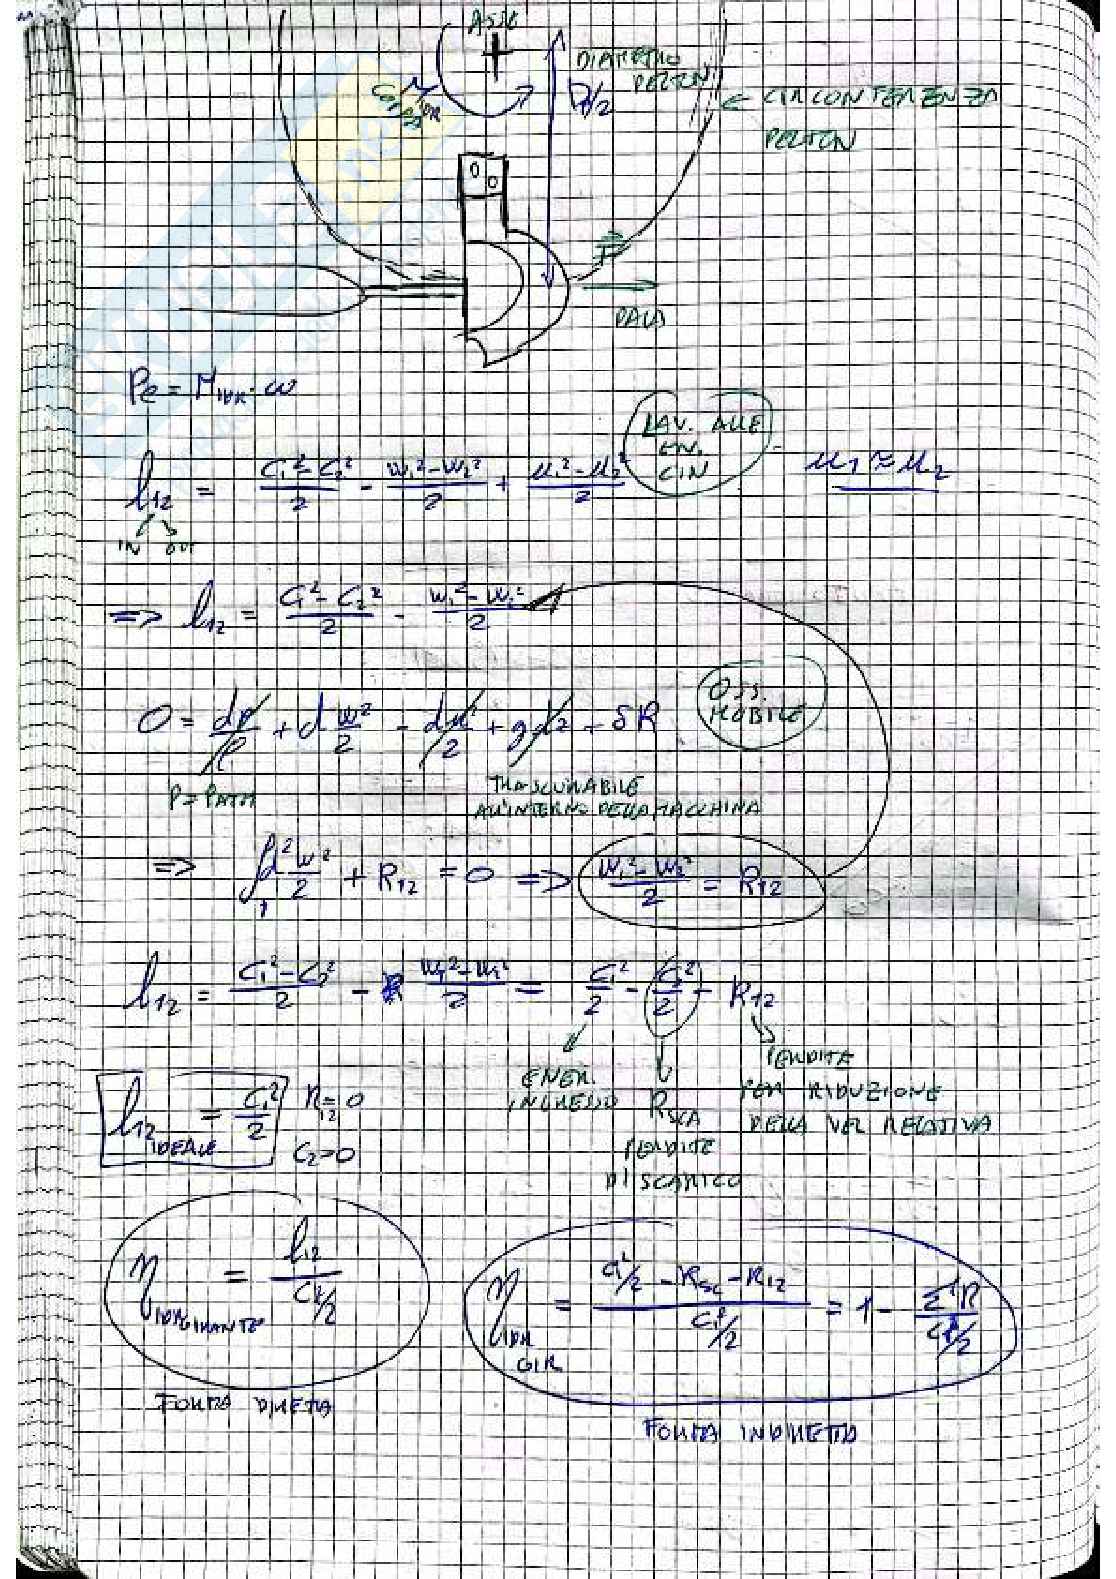 ASSE
DIAMETRO
PELTON
D/2
COPPIA
M IDR
← CIRCONFERENZA
PELTON
F
PALA
Pe = M_IDR · ω
l₁₂ = (c₁² - c₂²)/2 - (w₁² - w₂²)/2 + (u₁² - u₂²)/2
LAV. ALLE
EN.
CIN
u₁ ≈ u₂
IN OUT
=> l₁₂ = (c₁² - c₂²)/2 - (w₁² - w₂²)/2
O = dp/ρ + d w²/2 - du²/2 + gdz + δR
OSS.
MOBILE
P = PATM
TRASCURABILE
ALL'INTERNO DELLA MACCHINA
=> ∫₁² d w²/2 + R₁₂ = 0 => (w₁² - w₂²)/2 = R₁₂
l₁₂ = (c₁² - c₂²)/2 - (w₁² - w₂²)/2 = c₁²/2 - c₂²/2 - R₁₂
ENER.
INGRESSO
RSCA
PERDITE
DI SCARICO
PERDITE
PER RIDUZIONE
DELLA VEL RELATIVA
l₁₂ IDEALE = c₁²/2
R₁₂ = 0
c₂ = 0
η IDR GIRANTE = l₁₂ / (c₁²/2)
FORMA DIRETTA
η IDR GIR = (c₁²/2 - Rsc - R₁₂) / (c₁²/2) = 1 - ΣR / (c₁²/2)
FORMA INDIRETTA